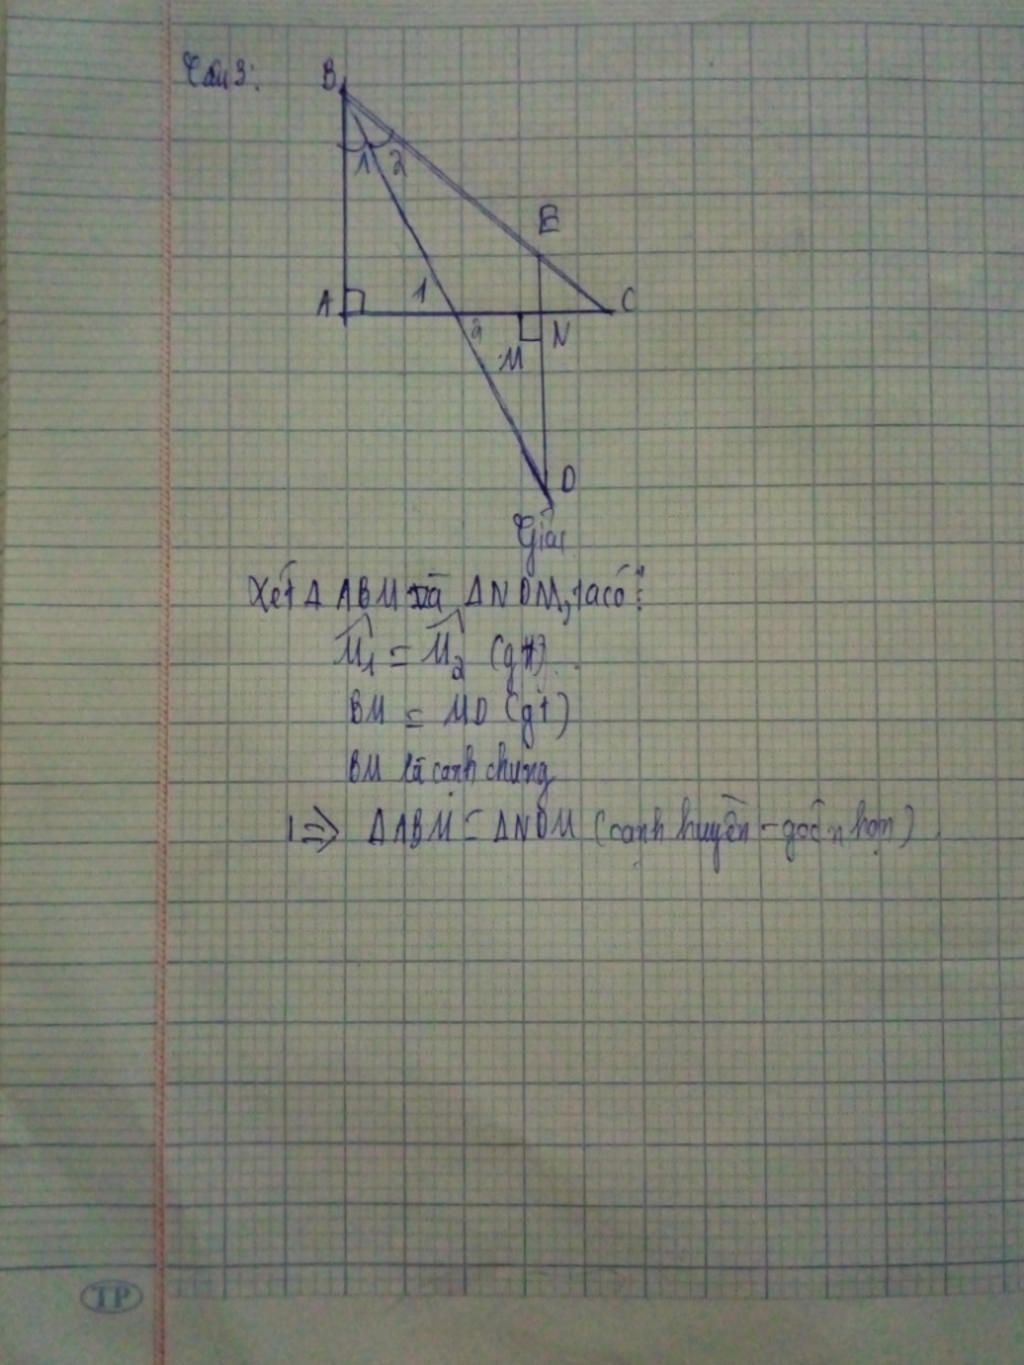 Câu 3:
B
1 2
E
A 1 C
2 M N
D
Giải
Xét Δ ABM và ΔNDM, ta có:
M̂₁ = M̂₂ (gt)
BM = MD (gt)
BM là cạnh chung
1 => ΔABM = ΔNDM (cạnh huyền - góc nhọn)
TP